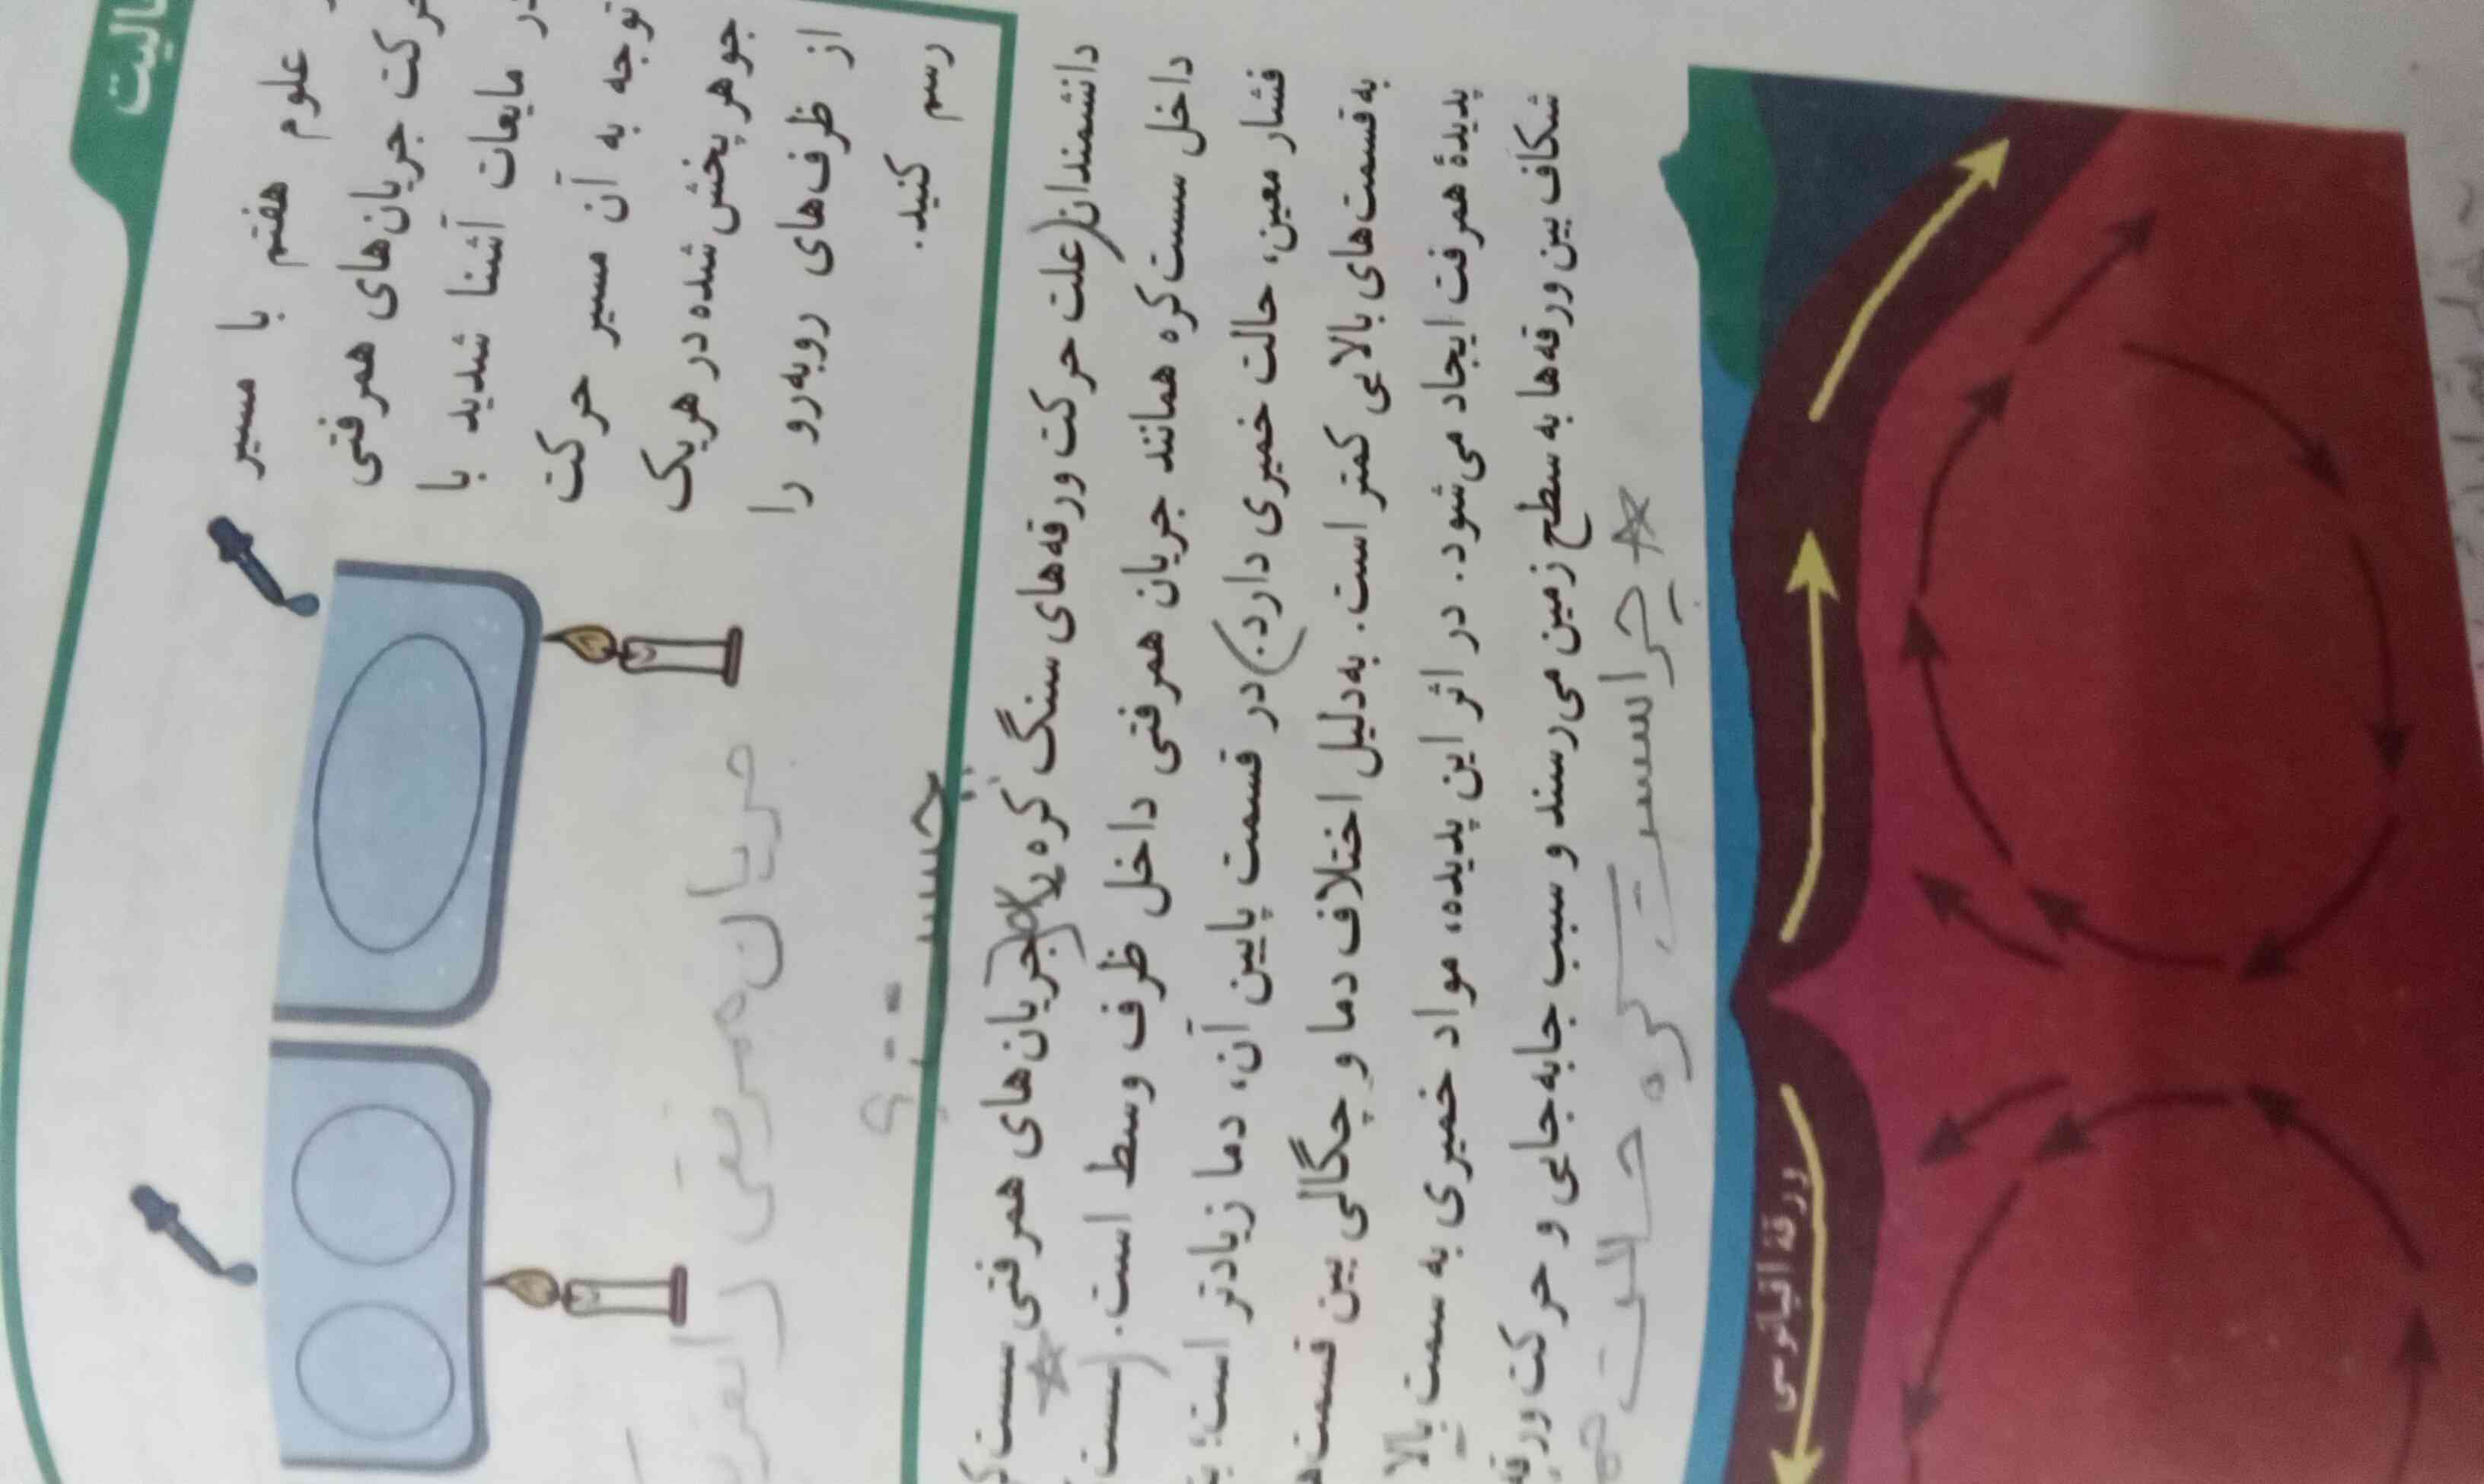 علوم هفتم با مسیر
جریان‌های همرفتی
مایعات آشنا شدید با
توجه به آن مسیر حرکت
جوهر پخش شده در هریک
از ظرف‌های روبه‌رو را
رسم کنید.
جریان همرفتی را تعریف
چیست؟
دانشمندان علت حرکت ورقه‌های سنگ کره را جریان‌های همرفتی سست
داخل سست‌کره همانند جریان همرفتی داخل ظرف وسط است. (سست
فشار معین، حالت خمیری دارد.) در قسمت پایین آن، دما زیادتر است؛
به قسمت‌های بالایی کمتر است. به‌دلیل اختلاف دما و چگالی بین قسمت
پدیدهٔ همرفت ایجاد می‌شود. در اثر این پدیده، مواد خمیری به سمت بالا
شکاف بین ورقه‌ها به سطح زمین می‌رسند و سبب جابه‌جایی و حرکت ورقه
چرا سست کره حالت
ورقهٔ اقیانوسی